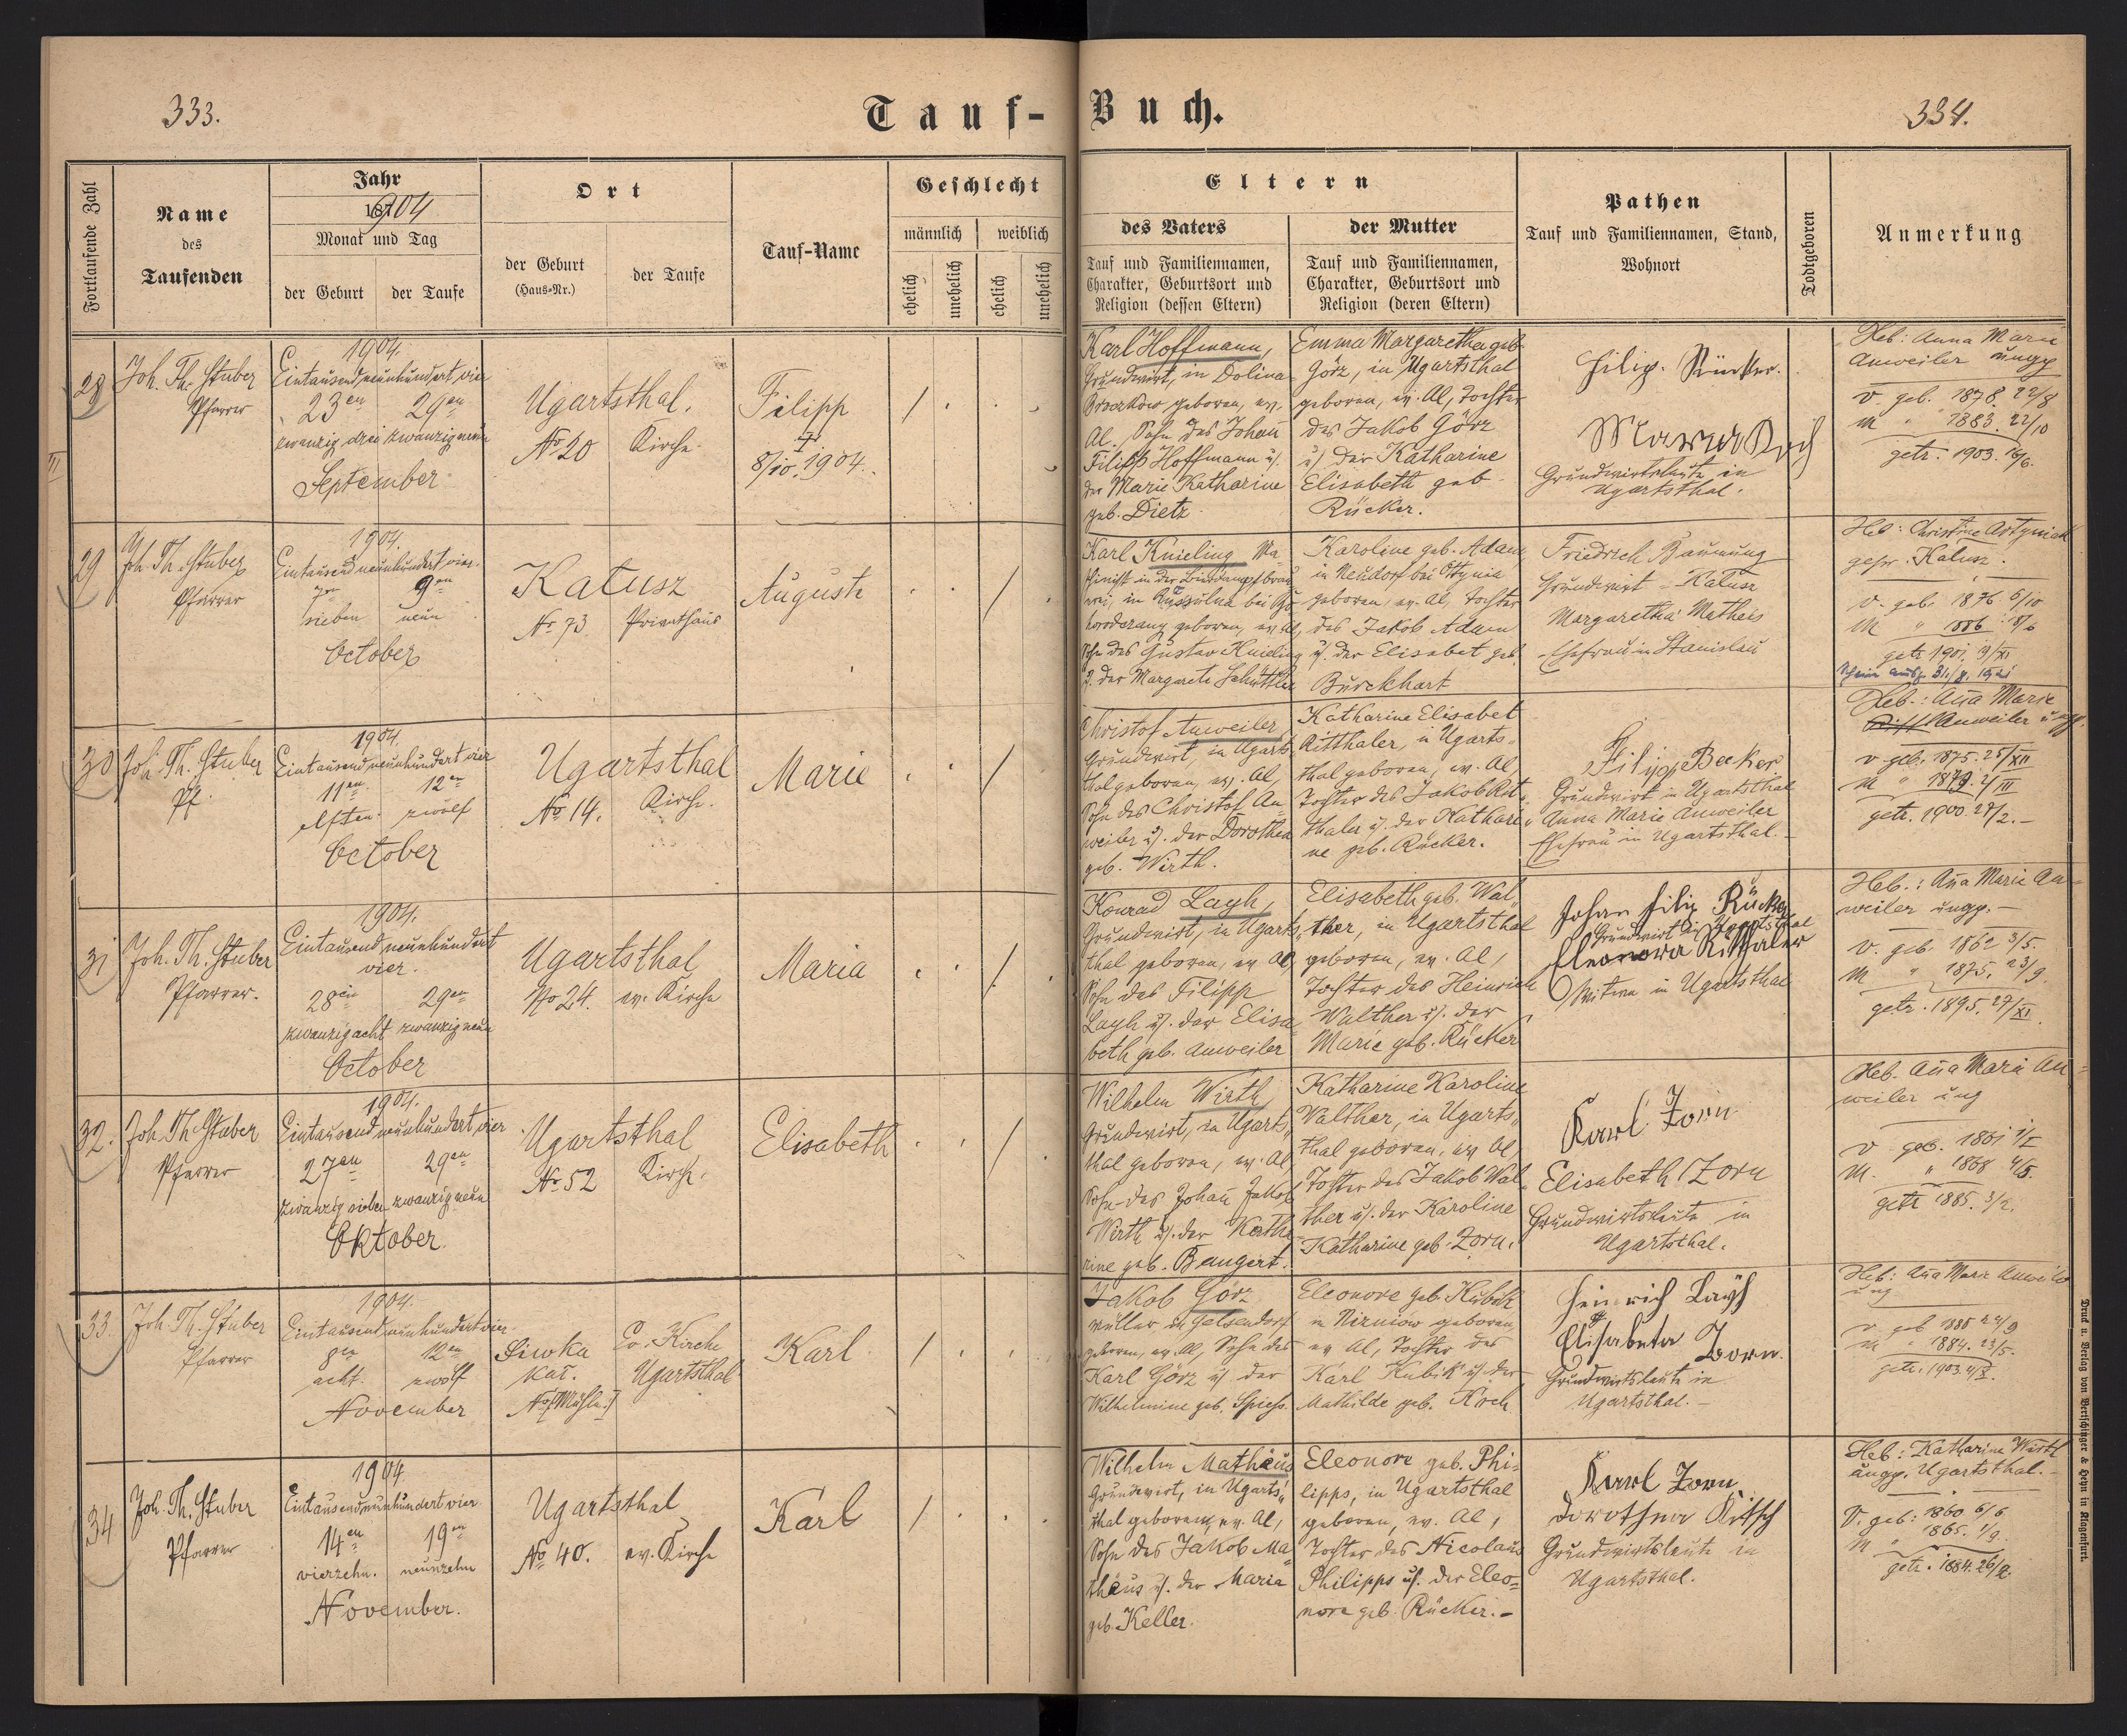 333.
Tauf-
Buch.
334.
Fortlaufende Zahl
Name
des
Taufenden
Jahr
1904
Monat und Tag
der Geburt
der Taufe
Ort
der Geburt
(Haus-Nr.)
der Taufe
Tauf-Name
Geschlecht
männlich
weiblich
ehelich
unehelich
ehelich
unehelich
Eltern
des Vaters
Tauf und Familiennamen,
Charakter, Geburtsort und
Religion (dessen Eltern)
der Mutter
Tauf und Familiennamen,
Charakter, Geburtsort und
Religion (deren Eltern)
Pathen
Tauf und Familiennamen, Stand,
Wohnort
Todtgeboren
Anmerkung
28
Joh. Th. Stuber
Pfarrer
1904.
Eintausendneunhundert vier
23en
29en
zwanzig drei
zwanzigneun
September
Ugartsthal.
No 20
Kirche
Filipp
8/10. 1904.
/
Karl Hoffmann,
Grundwirt, in Dolina
geboren, ev.
Al. Sohn des Johann
Filipp Hoffmann u.
der Marie Katharine
geb. Dietz
Emma Margaretha geb.
Görz, in Ugartsthal
geboren, ev. Al, Tochter
des Jakob Görz
u. der Katharine
Elisabeth geb.
Rücker.
Filip.
Grundwirtsleute in
Ugartsthal.
Heb: Anna Marie
Anweiler ungp
V. geb. 1878. 22/8
M " 1883. 22/10
getr. 1903. 16/6.
29
Joh. Th. Stuber
Pfarrer
1904.
Eintausend neunhundert vier.
7en
9en
sieben
neun
October
Katusz
No 73
Privathaus
Auguste
/
Karl Knieling Ma-
schinist in der
in bei
geboren, ev. Al,
Sohn des Gustav Knieling
u. der Margarete
Karoline geb. Adam,
in Neudorf bei Ottynia
geboren, ev. Al, Tochter
des Jakob Adam
u. der Elisabet geb.
Burckhart
Friedrich
Grundwirt - Katusz
Margaretha Matheis
Ehefrau in Stanislau
Heb: Christine
gepr. Kalusz.
V. geb. 1876 6/10
M " 1886 18/6
getr 1901. 9/XI
30
Joh. Th. Stuber
Pf.
1904.
Eintausend neunhundert vier
11en
12en
elften
zwölf
October
Ugartsthal
No 14.
Kirche.
Marie
/
Christof Anweiler,
Grundwirt, in Ugarts
thal geboren, ev. Al,
Sohn des Christof An-
weiler u. der Dorothea
geb. Wirth.
Katharine Elisabet
Ritthaler, in Ugarts-
thal geboren, ev. Al,
Tochter des Jakob Rit-
thaler u. der Kathari-
ne geb. Rücker.
Filipp Becker
Grundwirt in Ugartsthal
Anna Marie Anweiler
Ehefrau in Ugartsthal.
Heb.: Anna Marie
Anweiler ungp.
V. geb. 1875. 25/XII
M " 1879. 2/III
getr. 1900. 27/2.-
31
Joh. Th. Stuber
Pfarrer.
1904.
Eintausend neunhundert
vier.
28en
29en
zwanzigacht
zwanzigneun
October
Ugartsthal
No 24.
ev. Kirche
Maria
/
Konrad Layh,
Grundwirt, in Ugarts-
thal geboren, ev Al,
Sohn des Filipp
Layh u. der Elisa-
beth geb. Anweiler
Elisabeth geb. Wal-
ther, in Ugartsthal
geboren, ev. Al,
Tochter des Heinrich
Walther u. der
Marie geb. Rücker
Johan Filip Rücker
Grundwirt in Ugartsthal
Eleonora Ritthaler
Witwe in Ugartsthal
Heb.: Anna Marie An-
weiler ungp.-
V. geb. 1862 3/5.
M " 1875. 23/9.
getr. 1895. 27/XI.
32.
Joh. Th. Stuber
Pfarrer
1904.
Eintausend neunhundert vier
27en
29en
zwanzig sieben
zwanzigneun
Oktober.
Ugartsthal
No 52
Kirche.
Elisabeth
/
Wilhelm Wirth,
Grundwirt, in Ugarts-
thal geboren, ev. Al,
Sohn des Johann Jakob
Wirth u. der Katha-
rine geb. Bangert.
Katharine Karoline
Walther, in Ugarts-
thal geboren, ev Al,
Tochter des Jakob Wal-
ther u. der Karoline
Katharine geb. Zorn.
Karl Zorn
Elisabeth Zorn
Grundwirtsleute in
Ugartsthal.
Heb. Anna Marie An-
weiler ung
V geb. 1861 1/I
M. " 1868 4/5.
getr 1885. 3/2.
33.
Joh. Th. Stuber
Pfarrer
1904.
Eintausend neunhundert vier
8en
12en
acht.
zwölf
November
Siwka
Kal.
No [Mühle]
Ev. Kirche
Ugartsthal
Karl
/
Jakob Görz
Müller in Gelsendorf
geboren, ev. Al, Sohn des
Karl Görz u. der
Wilhelmine geb. Spiess.
Eleonore geb. Kubik
in geboren
ev Al, Tochter des
Karl Kubik u. der
Mathilde geb. Koch
Heinrich Layh
Elisabeta Zorn.
Grundwirtsleute in
Ugartsthal.-
Heb: Anna Marie Anweiler
ung
V geb 1885 24/9
M " 1884. 23/5.
getr. 1903 4/X.
34
Joh. Th. Stuber
Pfarrer
1904
Eintausend neunhundert vier
14en
19en
vierzehn.
neunzehn
November.
Ugartsthal
No 40.
ev. Kirche
Karl
/
Wilhelm Mathäus
Grundwirt, in Ugarts-
thal geboren, ev. Al,
Sohn des Jakob Ma-
thäus u. der Maria
geb. Keller.
Eleonore geb. Phi-
lipps, in Ugartsthal
geboren, ev. Al,
Tochter des Nicolaus
Philipps u. der Eleo-
nore geb. Rücker.-
Karl Zorn,
Dorothea
Grundwirtsleute in
Ugartsthal.
Heb: Katharina Wirth
ungp. Ugartsthal.-
V. geb: 1860 6/6
M " 1865. 1/9.
getr. 1884. 26/2
Druck u. Verlag von Bertschinger & Heyn in Klagenfurt.